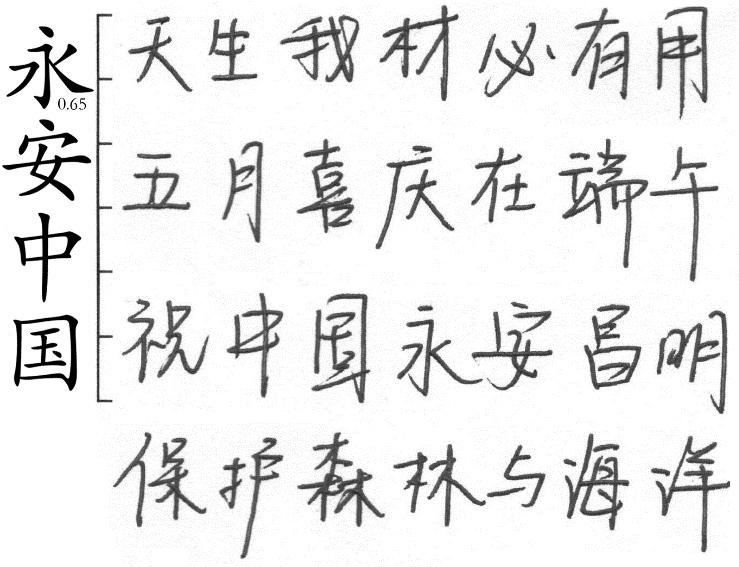 永安中国
0.65
天生我材必有用
五月喜庆在端午
祝中国永安昌明
保护森林与海洋